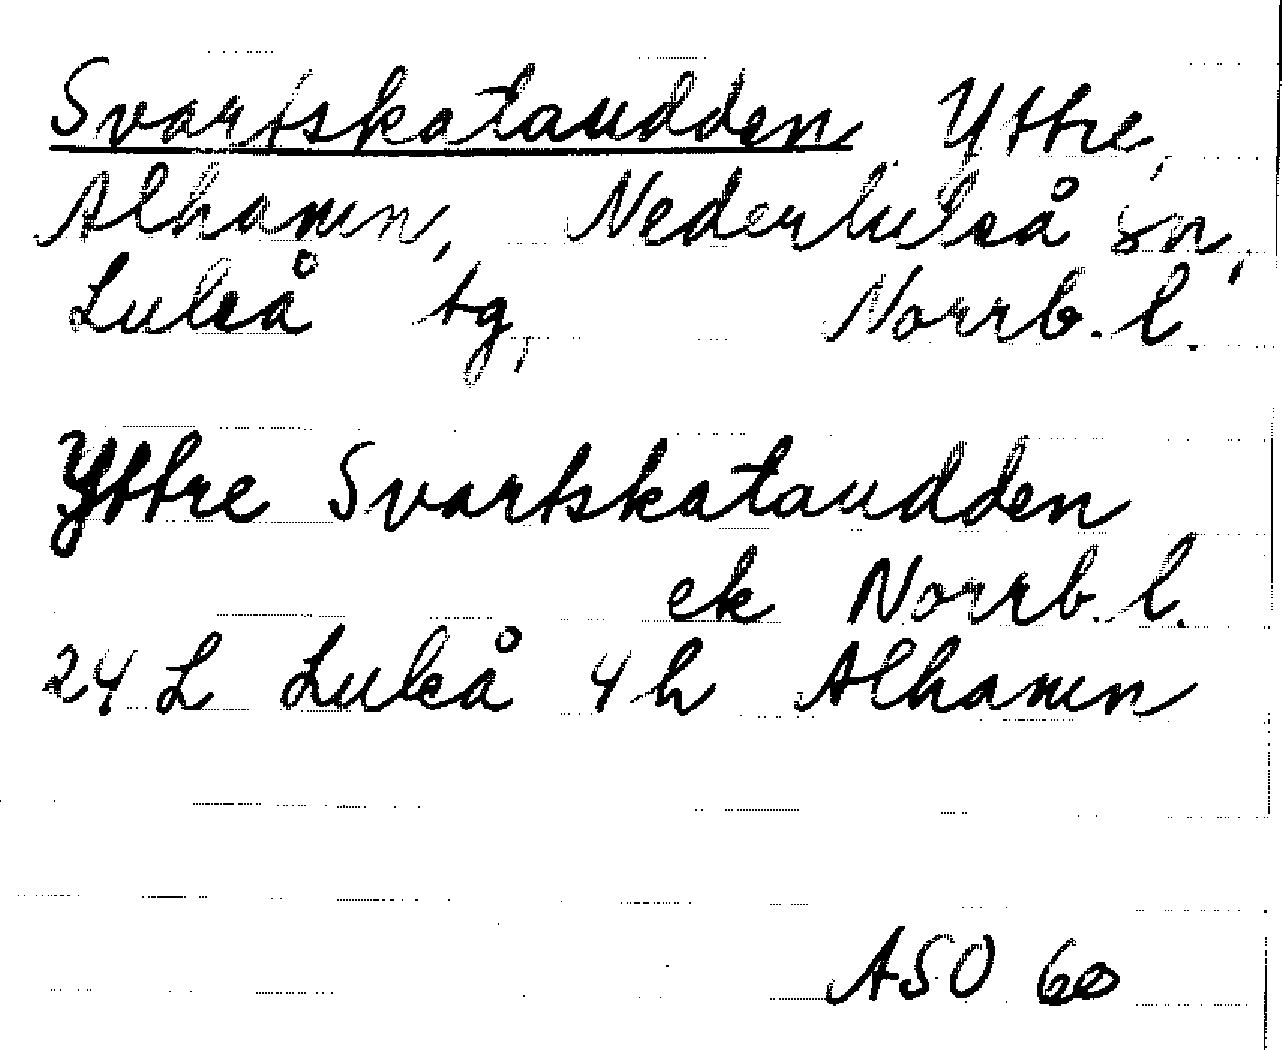 Svartskataudden Yttre,
Alhamn, Nederluleå sn,
Luleå tg, Norrb. l.
Yttre Svartskataudden
ek Norrb. l.
24 L Luleå 4 h Alhamn
ASO 60